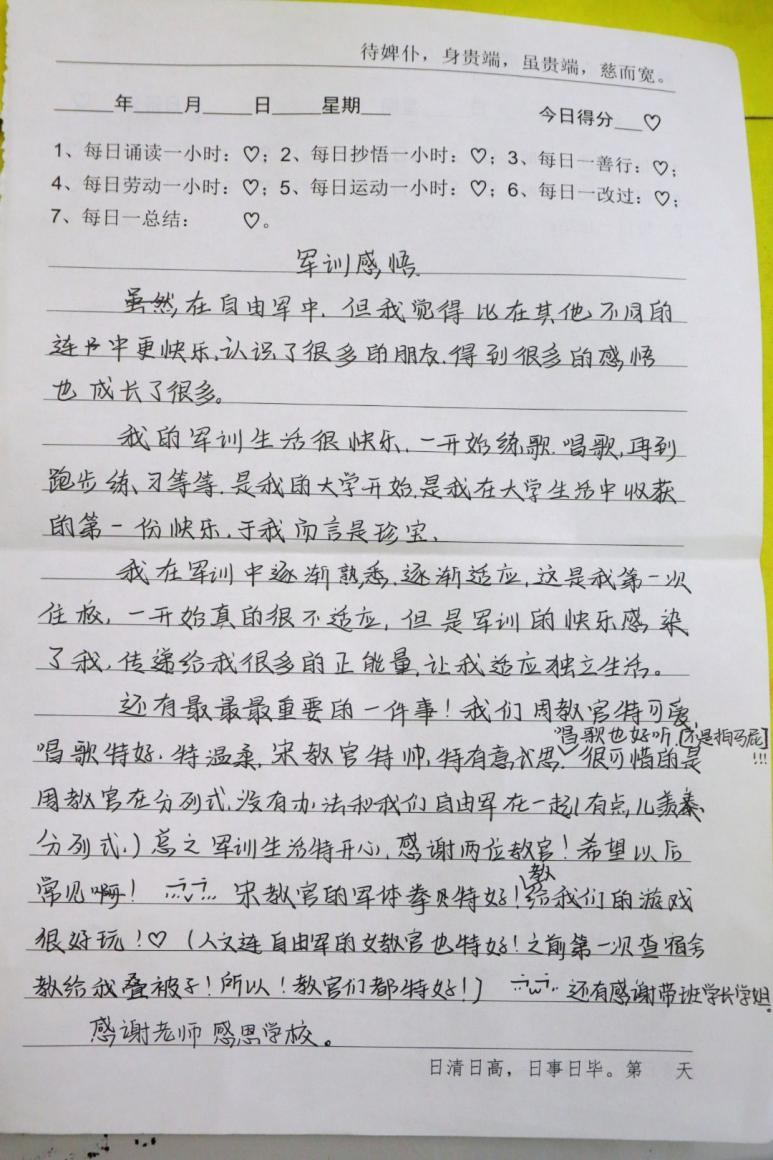 待婢仆，身贵端，虽贵端，慈而宽。
年 月 日 星期 今日得分 ♡
1、每日诵读一小时：♡；2、每日抄悟一小时：♡；3、每日一善行：♡；
4、每日劳动一小时：♡；5、每日运动一小时：♡；6、每日一改过：♡；
7、每日一总结： ♡。
军训感悟
虽然在自由军中，但我觉得比在其他不同的
连中更快乐，认识了很多的朋友，得到很多的感悟
也成长了很多。
我的军训生活很快乐，一开始练歌，唱歌，再到
跑步练习等等，是我的大学开始，是我在大学生活中收获
的第一份快乐，于我而言是珍宝、
我在军训中逐渐熟悉，逐渐适应，这是我第一次
住校，一开始真的很不适应，但是军训的快乐感染
了我，传递给我很多的正能量，让我适应独立生活。
还有最最最重要的一件事！我们周教官特可爱，
唱歌也好听。[不是拍马屁]!!!
唱歌特好，特温柔，宋教官特帅，特有意思，很可惜的是
周教官在分列式，没有办法和我们自由军在一起(有点儿羡慕
分列式。)总之军训生活特开心，感谢两位教官！希望以后
常见啊！ 宋教官的军体拳贝特好！教给我们的游戏
很好玩！♡（人文连自由军的文教官也特好！之前第一次查宿舍
教给我叠被子！所以！教官们都特好！） 还有感谢带班学长学姐。
感谢老师 感恩学校。
日清日高，日事日毕。第 天